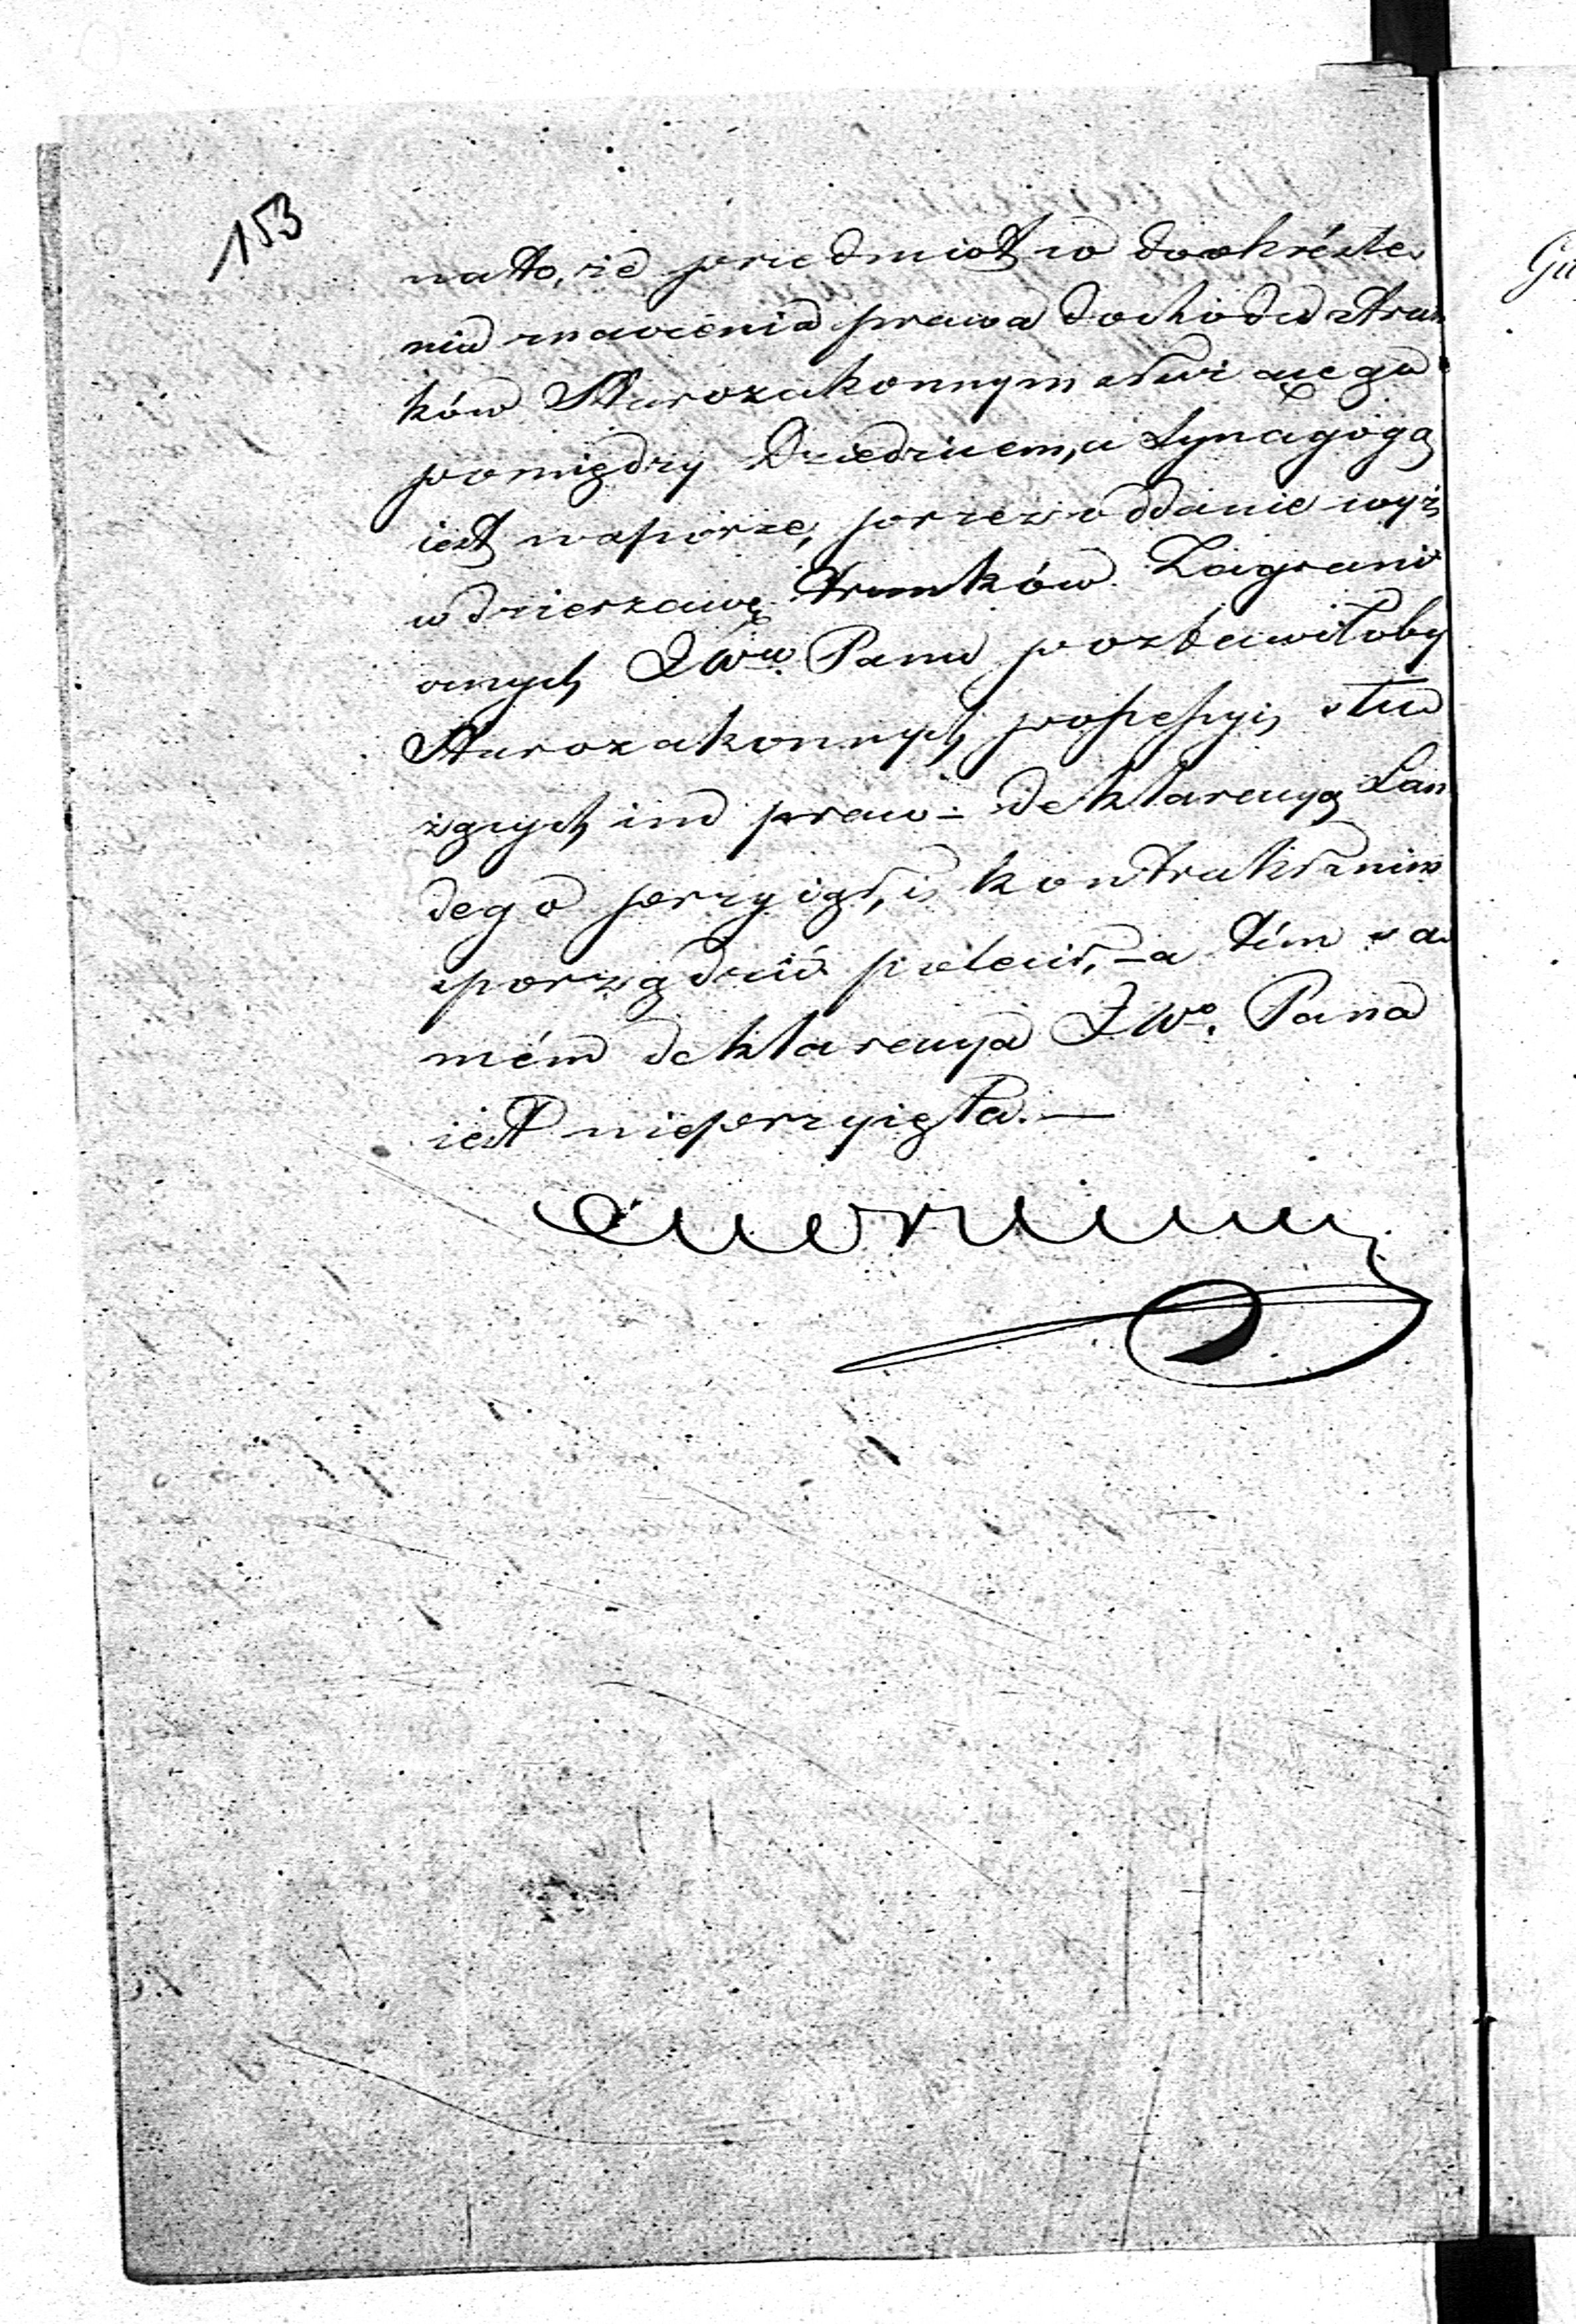 153
na to, że przedmiot w do okréśle
nia znaczenia prawa dochodu z trun
ków Starozakonnym służącego
pomiędzy Dziedzicem, a Synagogą
iest w sporze, przez oddanie wyż
w dzierzawę trunków Zagrani
cznych JWu. Panu pozbawiłoby
Starozakonnych possessyi, słu
żących im praw – deklaracyą Lan
dego przyiął, i kontrakt z nim
sporządzić polecił, – a tém sa
mém deklaracya JWo. Pana
iest nieprzyięta. —